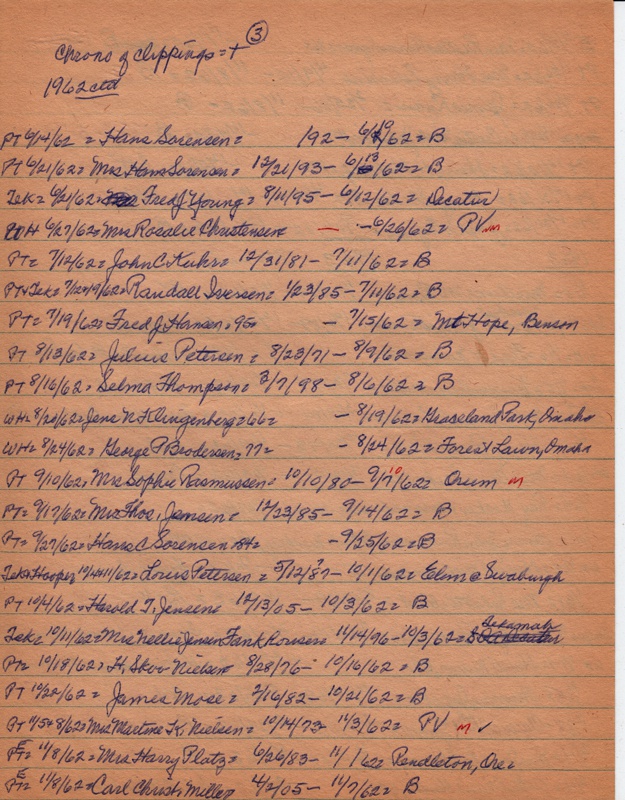 ③
Chrono of clippings = +
1962 ctd
PT 6/14/62 = Hans Sorensen = 192 – 6/10/62 = B
Pt 6/21/62 = Mrs Hans Sorensen = 12/21/93 – 6/13/62 = B
Tek = 6/21/62 = Fred J Young = 8/11/95 – 6/12/62 = Decatur
WH 6/27/62 = Mrs Rosalie Christensen — - 6/26/62 = PV m
PT = 7/12/62 = John C. Kuhr = 12/31/81 – 7/11/62 = B
PT & Tek = 7/12 & 19/62 = Randall Iversen = 1/23/85 – 7/11/62 = B
PT = 7/19/62 = Fred J. Hansen = 95 = – 7/15/62 = Mt Hope, Benson
PT 8/13/62 = Julius Petersen = 8/23/71 – 8/9/62 = B
PT 8/16/62 = Selma Thompson = 2/7/98 – 8/6/62 = B
WH = 8/20/62 = Jene N. Klingenberg = 66 = – 8/19/62 = Graceland Park, Omaha
WH = 8/24/62 = George P Brodersen = 77 = – 8/24/62 = Forest Lawn, Omaha
PT 9/10/62 = Mrs Sophie Rasmussen = 10/10/80 – 9/10/62 = Orum m
PT = 9/17/62 = Mrs Thos. Jensen = 12/23/85 – 9/14/62 = B
PT = 9/27/62 = Hans C Sorensen 84 = - 9/25/62 = B
Tek & Hooper 10/4 & 11/62 = Louis Petersen = 5/12/87 – 10/1/62 = Elim @ Swaburgh
PT 10/4/62 = Harold T. Jensen = 12/13/05 – 10/3/62 = B
Tek = 10/11/62 = Mrs Nellie Jensen Fank Rouse = 11/14/96 – 10/3/62 = Tekamah
PT = 10/18/62 = H. Skov Nielsen 8/28/76 – 10/16/62 = B
PT 10/22/62 = James Mose = 2/16/82 – 10/21/62 = B
PT 11/5 & 8/62 = Mrs Martine K. Nielsen = 10/14/73 – 11/3/62 = PV m ✓
PT E = 11/8/62 = Mrs Harry Platz = 6/26/83 – 11/1/62 = Pendleton, Ore =
PT E = 11/8/62 = Carl Christ. Miller 4/2/05 – 11/7/62 = B